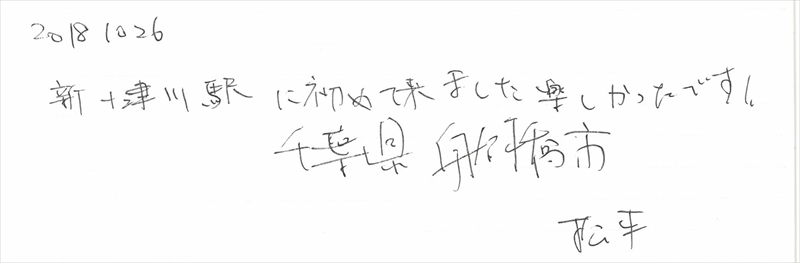 2018 10 26
新十津川駅に初めて来ました楽しかったです!
千葉県船橋市
松平